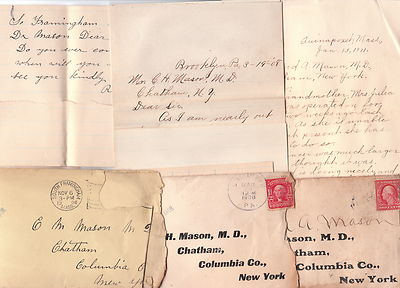 So Framingham
Dr Mason Dear
Do you ever co
when will you
see you kindly.
R
Brooklyn, Pa 3-19-08
Mr. C. H. Mason, M.D.
Chatham, N.Y.
Dear Sir.
As I am nearly out
Quinapoxet, Mass,
Jan. 13, 1911.
d A. Mason, M.D.
New York.
andmother Mrs Julia
as operated on for
two weeks ago last
As she is unable
present she has
to do so.
was much larger
thought it was.
is doing nicely and
SOUTH FRAMINGHAM
NOV 6
3-PM
C M Mason M
Chatham
Columbia
New Yo
MAR
1908
PA
H. Mason, M. D.,
Chatham,
Columbia Co.,
New York
A. Mason
ason, M. D.,
tham,
Columbia Co.,
New York